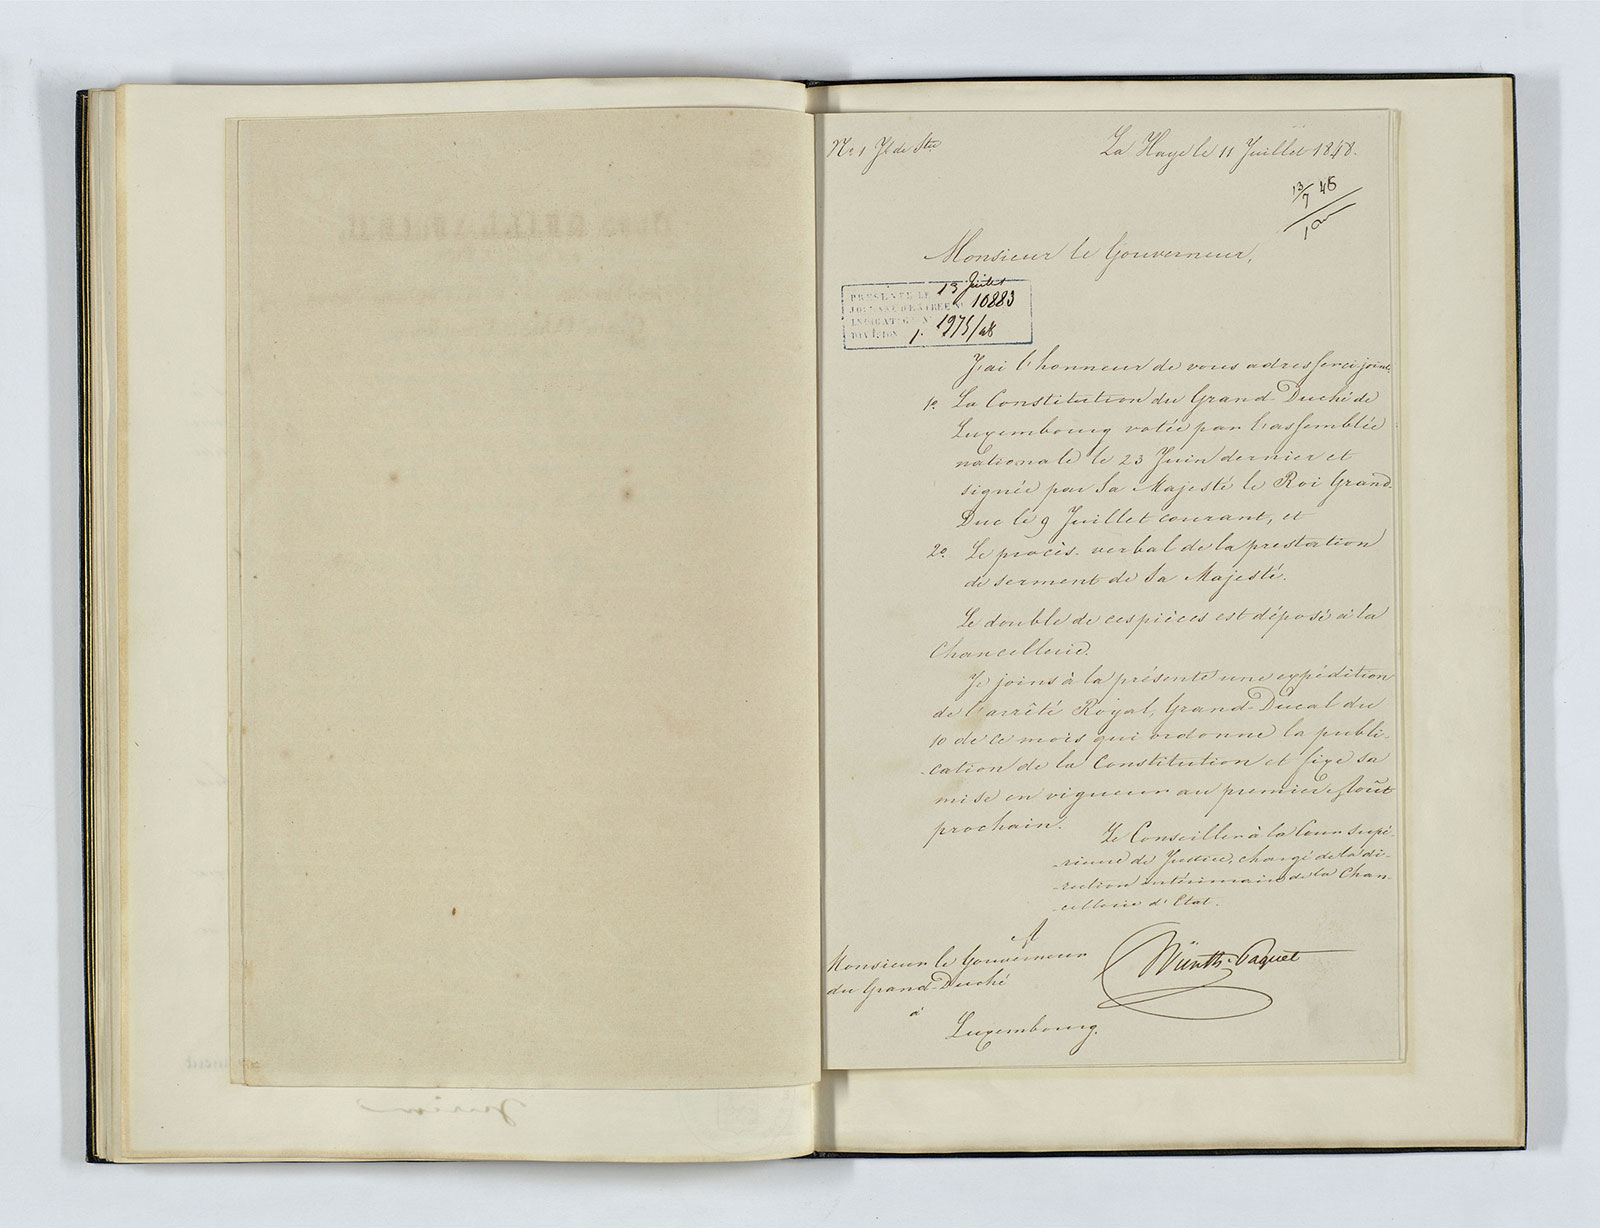 La Haye le 11 Juillet 1848.
13/7 48
Monsieur le Gouverneur,
PRÉSENTÉ LE 13 Juillet
JOURNAL D'ENTRÉE N° 10883
INDICATEUR N° 1975/48
DIVISION 1.
J'ai l'honneur de vous adresser ci joint:
1º. La Constitution du Grand-Duché de
Luxembourg votée par l'assemblée
nationale le 23 Juin dernier et
signée par Sa Majesté le Roi Grand-
Duc le 9 Juillet courant, et
2º. Le procès-verbal de la prestation
de serment de Sa Majesté.
Le double de ces pièces est déposé à la
Chancellerie.
Je joins à la présente une expédition
de l'arrêté Royal, Grand-Ducal du
10 de ce mois qui ordonne la publi-
-cation de la Constitution et fixe sa
mise en vigueur au premier Août
prochain.
Le Conseiller à la Cour Supé-
-rieure de Justice, chargé de la di-
-rection intérimaire de la Chan-
-cellerie d'Etat.
Würth-Paquet
Monsieur le Gouverneur
du Grand-Duché
à
Luxembourg.